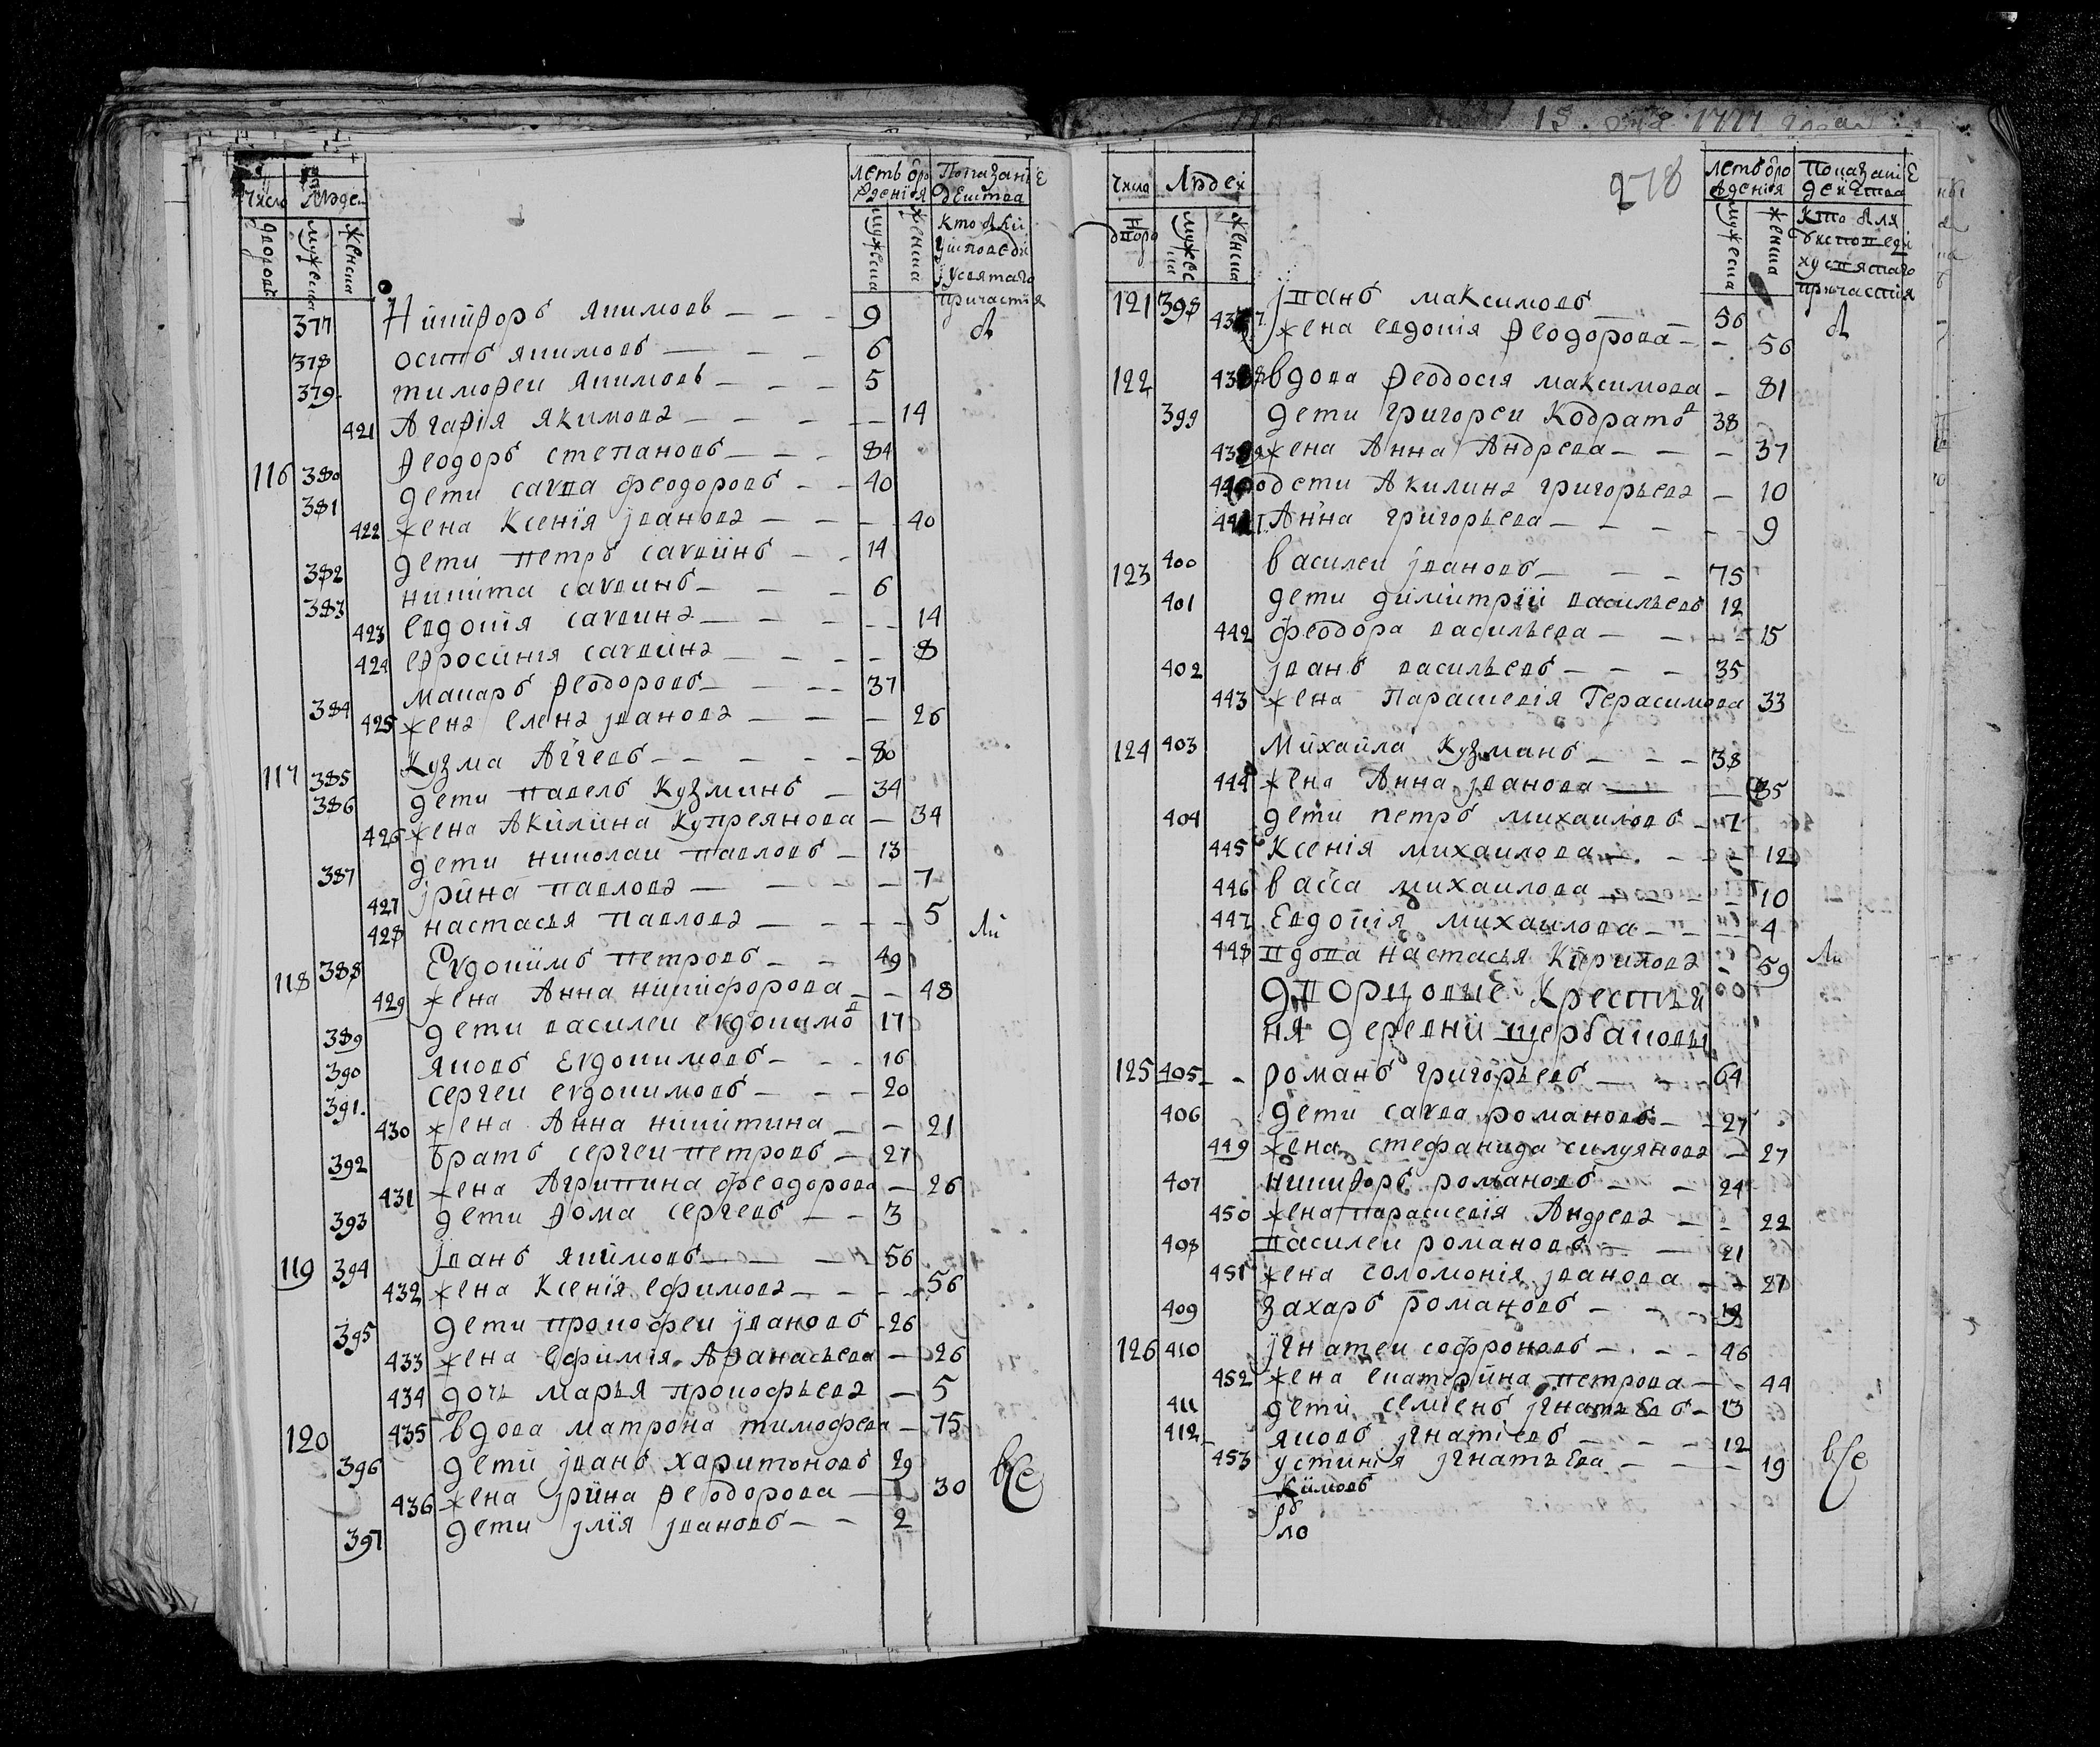 Число Людеи
дворовъ
мужеска
женска
летъ от рождения
мужеска
женска
Показание действа
кто были у исповеди и у святаго причастия
377 Никифоръ Якимовъ — — — 9 бы
378 осипъ якимовъ — — — 6
379 тимофеи якимовъ — — — 5
421 Агафiя якимова — — — — 14
116 380 Феодоръ степановъ — — — 84
381 дети савва феодоровъ — — 40
422 жена Ксенiя iванова — — — 40
382 дети петръ саввинъ — 14
383 никита саввинъ — — — 6
423 евдокiя саввина — — — — 14
424 ефросинiя саввина — — — — 8
384 макаръ Феодоровъ — — — 37
425 жена елена iванова — — — 26
117 385 Кузма Агѓеевъ — — — — — 80
386 дети павелъ Кузминъ — 34
426 жена Акилина Купреянова — 34
387 дети николаи павловъ — 13
427 iрина павлова — — — — 7
428 настасья павлова — — — — 5 ли
118 388 Евдокимъ петровъ — — 49
429 жена Анна никифорова — — 48
389 дети василеи евдокимовъ 17
390 яковъ Евдокимовъ — — — 16
391 сергеи евдокимовъ — — — 20
430 жена Анна никитина — — 21
392 братъ сергеи петровъ — 27
431 жена Агрипина феодорова — 26
393 дети Фома сергеевъ — — 3
119 394 iванъ якимовъ — — — 56
432 жена Ксенiя ефимова — — — — 56
395 дети прокофеи iвановъ — 26
433 жена ефимiя Афанасьева — 26
434 дочь марья прокофьева — 5
120 435 вдова матрона тимофеева — 75
396 дети iванъ харитоновъ 29
436 жена iрина Феодорова — 30 все
397 дети iлiя iвановъ — — 2
278
Число Людеи
дворо
мужеска
женска
летъ от рождения
мужеска
женска
Показание действа
кто были у исповеди и у святаго причастия
121 398 iванъ максимовъ — — 56 бы
437 жена евдокiя Феодорова — — 56
122 438 вдова Феодосiя максимова — 81
399 дети григореи Кодратовъ 38
439 жена Анна Андреева — — — 37
440 дети Акилина григорьева — 10
441 Анна григорьева — — — — 9
123 400 василеи iвановъ — — — 75
401 дети димитрiи васильевъ 12
442 феодора васильева — — — 15
402 iванъ васильевъ — — — 35
443 жена Парасковiя Герасимова 33
124 403 Михаила Кузманъ — — — 38
444 жена Анна iванова — — 35
404 дети петръ михаиловъ — 7
445 Ксенiя михаилова — — — 12
446 васса михаилова — — — — 10
447 Евдокiя михаилова — — — 4
448 вдова настасья Кирилова — 59 ли
дворцовые Крестья
ня деревни щербаковы
125 405 романъ григорьевъ — — 64
406 дети савва романовъ — — 27
449 жена стефанида силуянова — 27
407 никифоръ романовъ — — 24
450 жена парасковiя Андреева — — 22
408 василеи романовъ — — 21
451 жена соломонiя iванова — — 27
409 захаръ романовъ — — — 19
126 410 iгнатеи софроновъ — — — 46
452 жена екатерина петрова — — 44
411 дети семенъ iгнатьевъ — 13
412 яковъ iгнатiевъ — — — 12
453 устинiя iгнатьева — — — 19 все